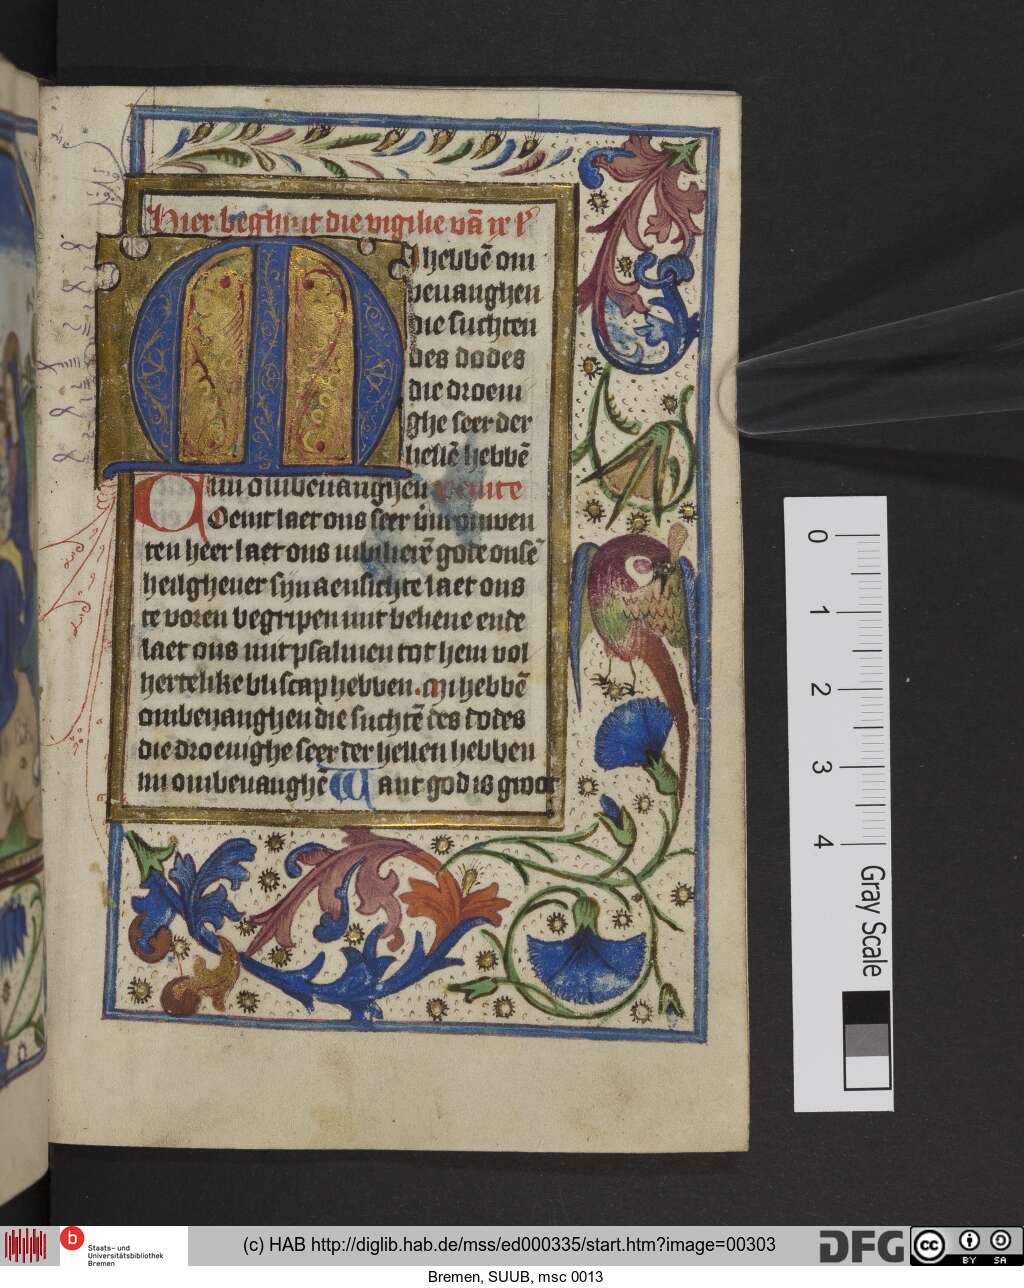 Hier beghint die vigilie vā ix lº
Mi hebbē om
bevanghen
die suchten
des dodes
die droevi
ghe seer der
hellē hebbē
mi ombevanghen Venite
Coemt laet ons seer uutvrouwen
ten heer laet ons iubilierē gode onsē
heilghever sijn aensichte laet ons
te voren begripen mit beliene ende
laet ons mit psalmen tot hem vol
hertelike bliscap hebben. Mi hebbē
ombevanghen die suchtē des dodes
die droevighe seer der hellen hebben
mi ombevanghē Want god is groot
0
1
2
3
4
Gray Scale
b
Staats- und
Universitätsbibliothek
Bremen
(c) HAB http://diglib.hab.de/mss/ed000335/start.htm?image=00303
DFG
cc
BY SA
Bremen, SUUB, msc 0013